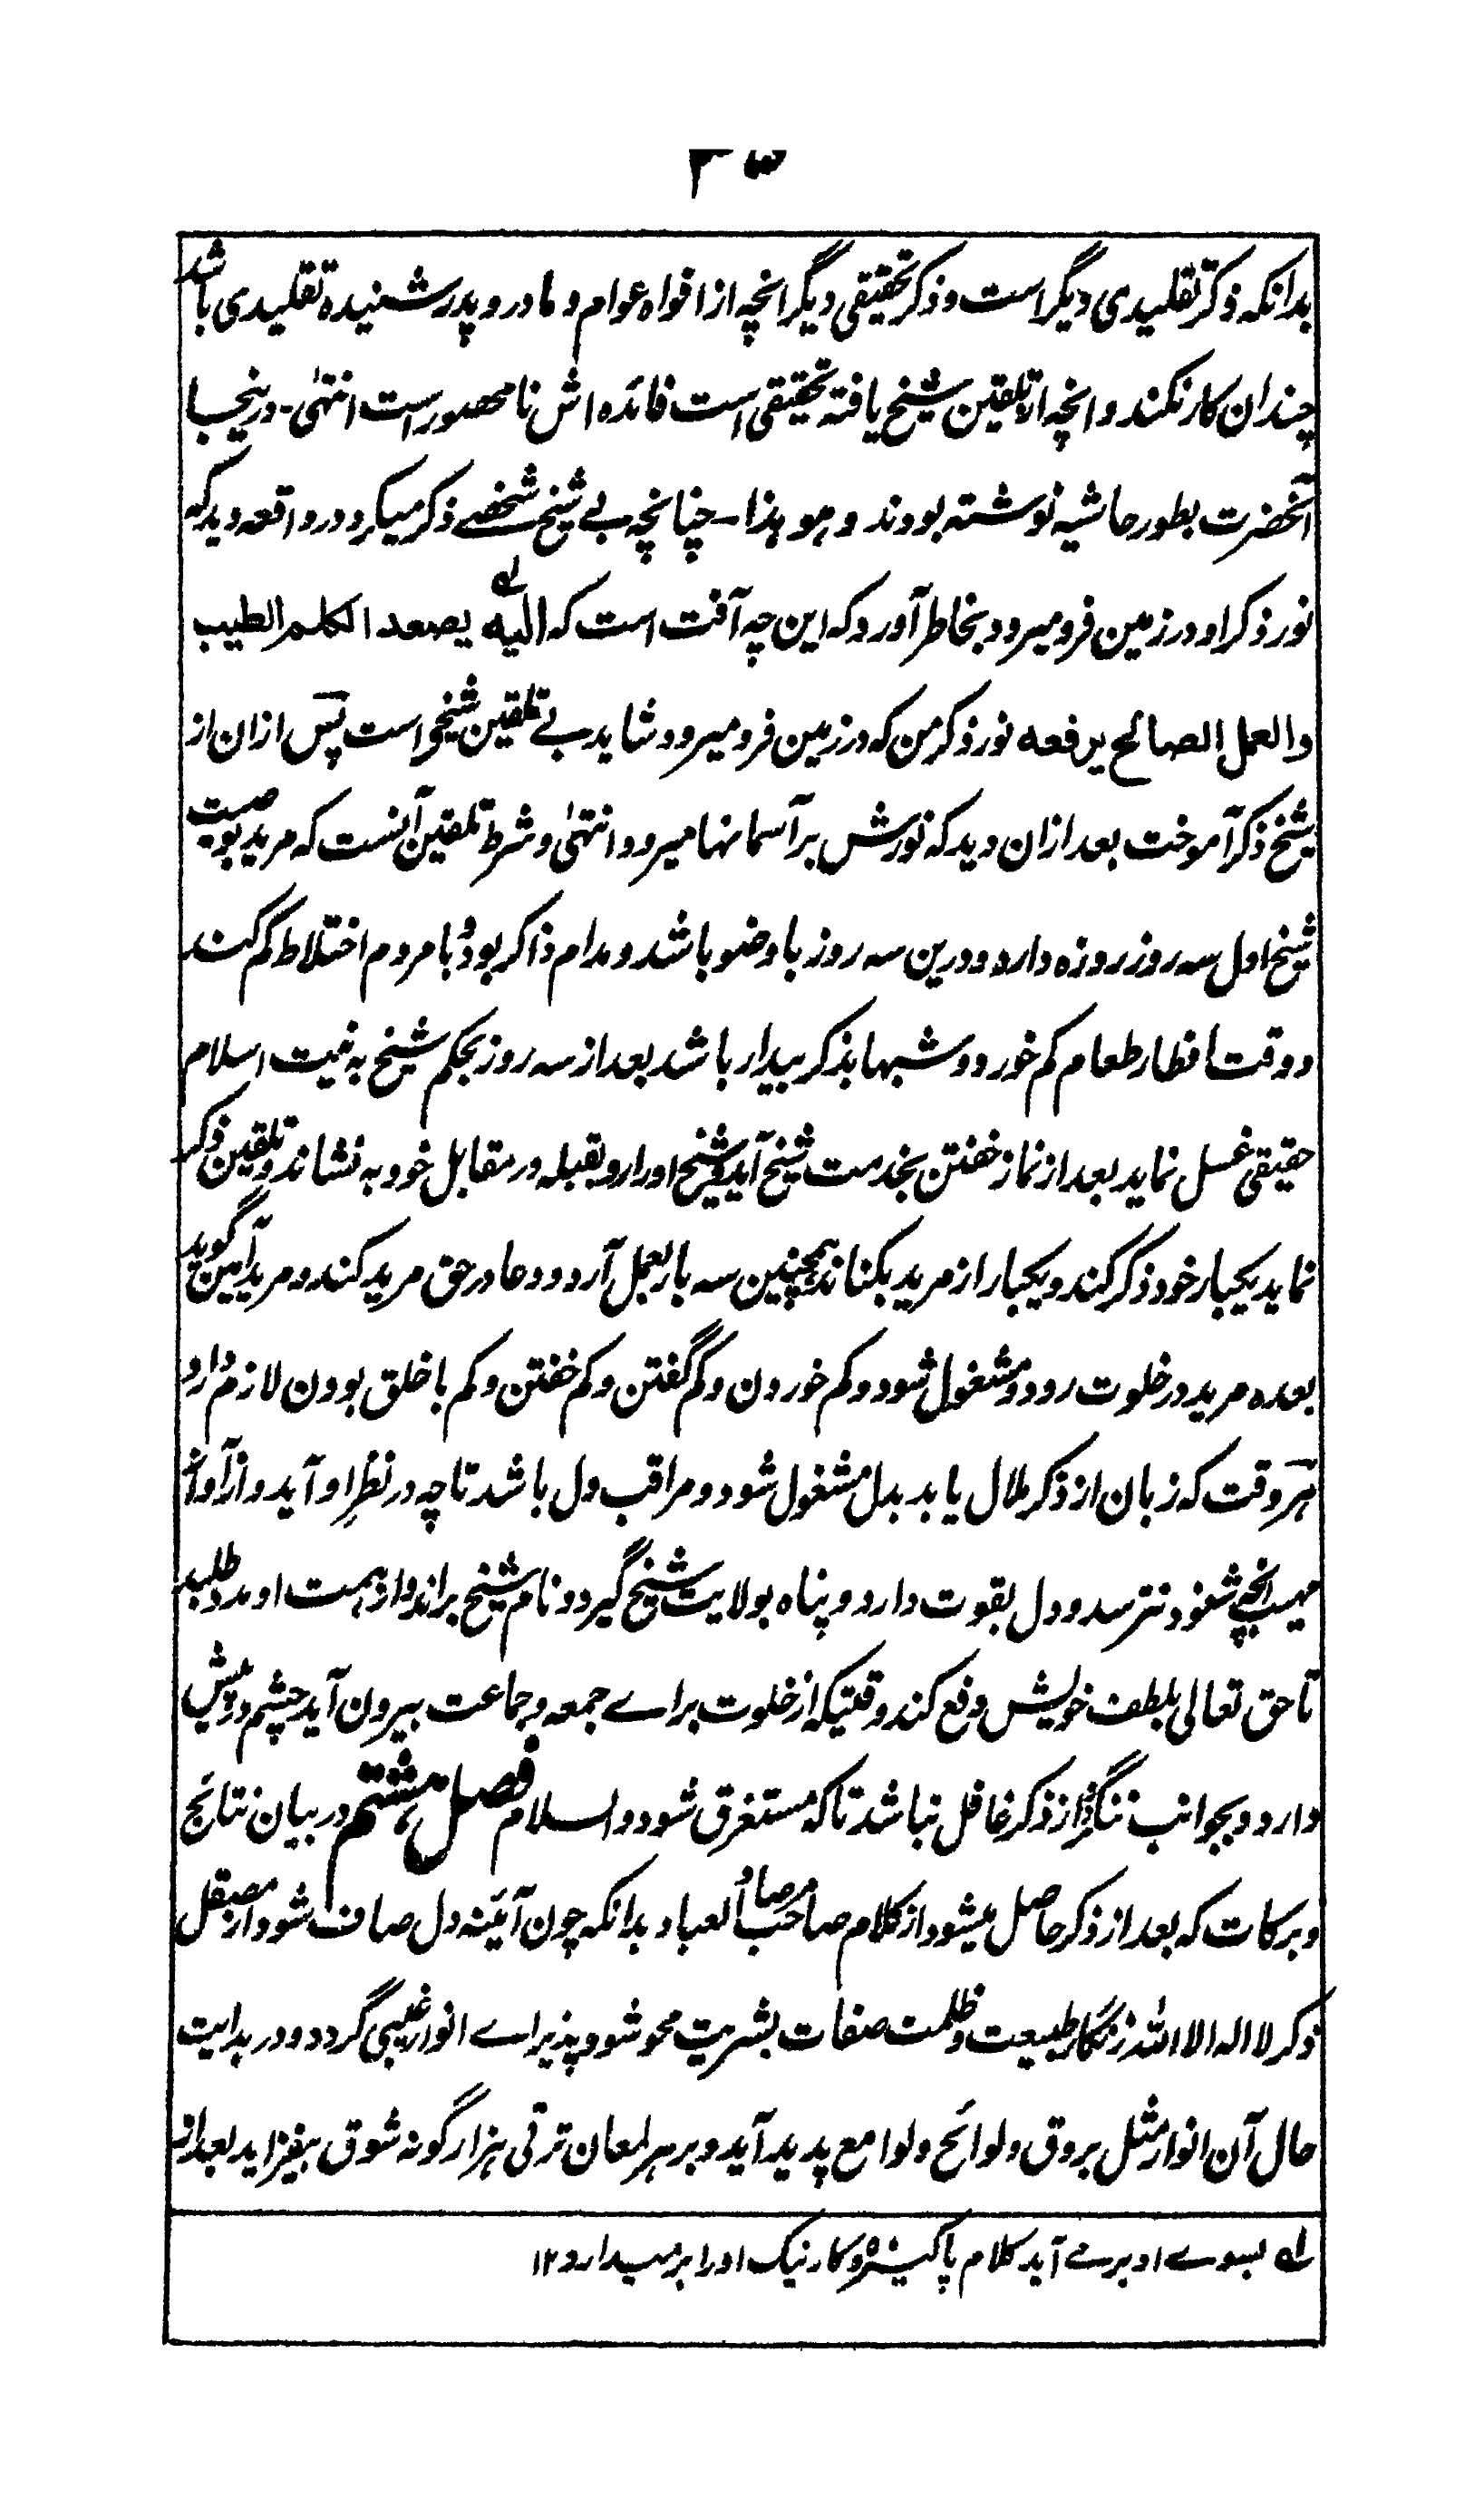 ۲۳
بدانکه ذکر تقلیدی دیگر است و ذکر تحقیقی دیگر انچه از افواه عوام و مادر و پدر شنیده تقلیدی باشد
چندان کار نکند و انچه از تلقین شیخ یافته تحقیقی است فائده اش نامحصور است انتهیٰ - درینجا
آنحضرت بطور حاشیه نوشته بودند و هو هذا - چنانچه بے شیخ شخصے ذکر میکرد در واقعه دید که
نور ذکر او در زمین فرو میرود بخاطر آورد که این چه آفت است که الیهله یصعد الکلم الطیب
والعمل الصالح یرفعه نور ذکر من که در زمین فرو میرود شاید بے تلقین شیخ است پس ازان از
شیخ ذکر آموخت بعد ازان دید که نورش بر آسمانها میرود انتهیٰ و شرط تلقین آنست که مرید بوصیت
شیخ اول سه روز روزه دارد و درین سه روز با وضو باشد و مدام ذاکر بود و با مردم اختلاط کم کند
و وقت افطار طعام کم خورد و شبها بذکر بیدار باشد بعد از سه روز بحکم شیخ به نیت اسلام
حقیقی غسل نماید بعد از نماز خفتن بخدمت شیخ آید و شیخ او را رو بقبله در مقابل خود به نشاند و تلقین ذکر
نماید یکبار خود ذکر کند و یکبار از مرید بکناند همچنین سه بار بعمل آرد و دعا در حق مرید کند و مرید آمین گوید
بعده مرید در خلوت رود و مشغول شود و کم خوردن و کم گفتن و کم خفتن و کم با خلق بودن لازم دارد
هر وقت که زبان از ذکر ملال یابد بدل مشغول شود و مراقب دل باشد تا چه در نظر او آید و از آواز
مهیب انچه شنود نترسد و دل بقوت دارد و پناه بولایت شیخ گیرد و نام شیخ براند و از همت او مدد طلبد
تا حق تعالی بلطف خویش دفع کند و وقتیکه از خلوت برای جمعه و جماعت بیرون آید چشم در پیش
دارد و بجوانب ننگرد از ذکر غافل نباشد تا که مستغرق شود والسلام فصل هشتم در بیان نتائج
و برکات که بعد از ذکر حاصل میشود از کلام صاحب مرصاد العباد بدانکه چون آئینه دل صاف شود از مصقل
ذکر لا اله الا الله زنگار طبیعت و ظلمت صفات بشریت محو شود پذیرای انوار غیبی گردد و در بدایت
حال آن انوار مثل بروق و لوائح و لوامع پدید آید و بر هر لمعان ترقی هزار گونه شوق بیفزاید بعد از
له بسوے او برے آید کلام پاکیزه و کار نیک او را بر میدارد ۱۲